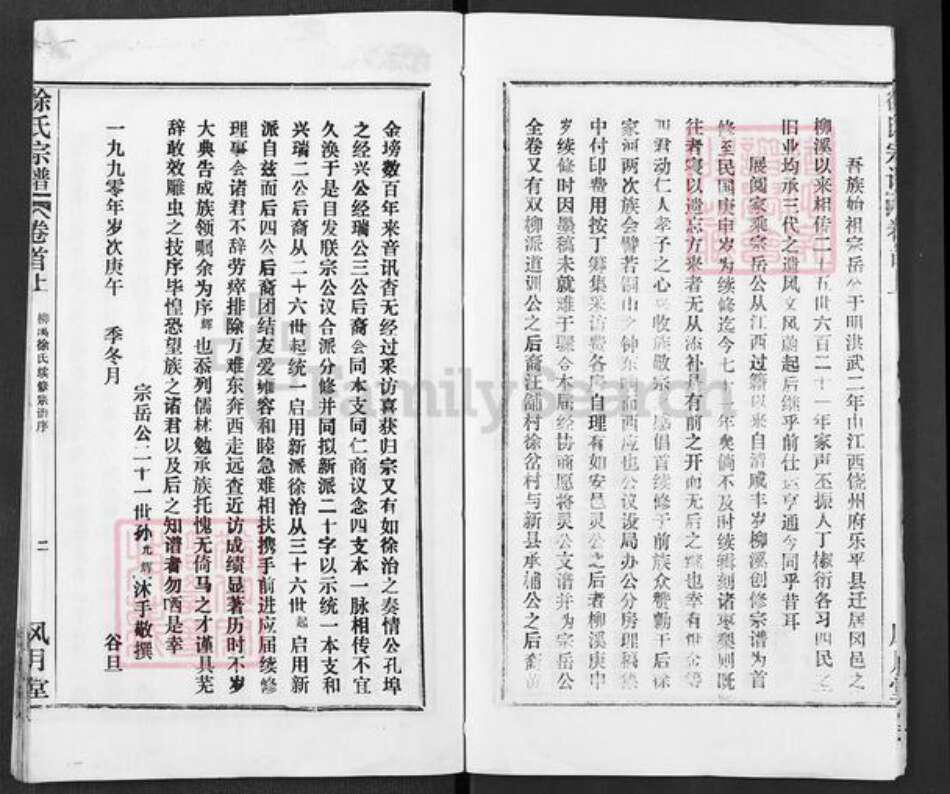 吾族始祖宗岳公于明洪武二年由江西饶州府乐平县迁居冈邑之
柳溪以来相传二十五世六百二十一年家声丕振人丁椒衍各习四民之
旧业均承三代之遗风文风蔚起后继乎前仕运亨通今同乎昔耳
展阅家乘宗岳公从江西过籍以来自清咸丰岁柳溪创修宗谱为首
修至民国庚申岁为续修迄今七十年矣倘不及时续辑刻诸枣梨则既
往者寖以遗忘方来者无从添补具有前之开而无后之继也幸有世金等
四君动仁人孝子之心收族敬宗倡首续修于前族众赞勷于后徐
家河两次族会譬若铜山之钟东响而西应也公议设局办公分房理稿集
中付印费用按丁筹集采访费各房自理有如安邑灵公之后者柳溪庚申
岁续修时因墨稿未就难于骤合本届经协商愿将灵公支谱并为宗岳公
全卷又有双柳派道训公之后裔汪铺村徐岔村与新县承浦公之后裔黄
金塝数百年来音讯杳无经过采访喜获归宗又有如徐治之奏情公孔埠
之经兴公经瑞公三公后裔会同本支同仁商议念四支本一脉相传不宜
久涣于是目发联宗公议合派分修并同拟新派二十字以示统一本支和
兴瑞二公后裔从二十六世起统一启用新派徐治从三十六世起启用新
派自兹而后四公后裔团结友爱雍容和睦急难相扶携手前进应届续修
理事会诸君不辞劳瘁排除万难东奔西走远查近访成绩显著历时不岁
大典告成族领嘱余为序辉也忝列儒林勉承族托愧无倚马之才谨具芜
辞敢效雕虫之技序毕惶恐望族之诸君以及后之知谱者勿哂是幸
宗岳公二十一世孙光辉沐手敬撰
一九九零年岁次庚午 季冬月 谷旦
徐氏宗谱 卷首上 柳溪徐氏续修宗谱序 二 风月堂
FamilySearch